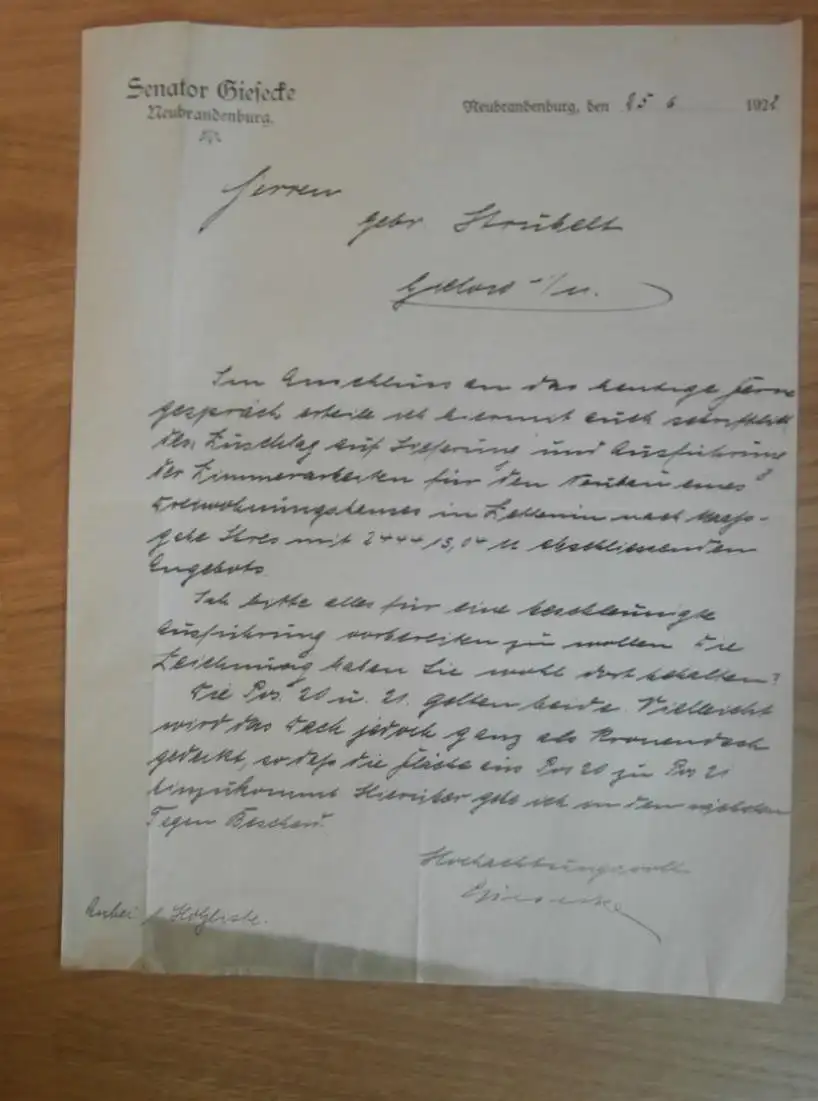 Senator Giesecke
Neubrandenburg.
Neubrandenburg, den 25 6 1922
Herren
Gebr. Strübelt
Im Anschluss an das heutige Fern
gespräch erteile ich hiermit auch schriftlich
den Zuschlag auf Lieferung und Ausführung
der Zimmerarbeiten für den Neubau eines
Dreiwohnungshauses in nach Mass-
gabe Ihres mit M abschliessenden
Angebots.
Ich bitte alles für eine beschleunigte
Ausführung vorbereiten zu wollen. Die
Zeichnung haben Sie wohl dort behalten?
Die Pos. 20 u. 21. gelten beide. Vielleicht
wird das Dach jedoch ganz als Kronendach
gedeckt, so daß die Fläche aus Pos 20 zu Pos 21
hinzukommt. Hierüber gebe ich in den nächsten
Tagen Bescheid.
Hochachtungsvoll
Giesecke
Anbei 1 Holzliste.